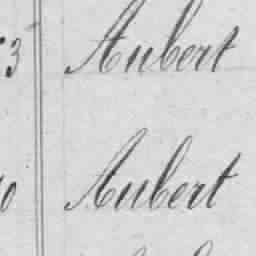 3 Aubert
0 Aubert